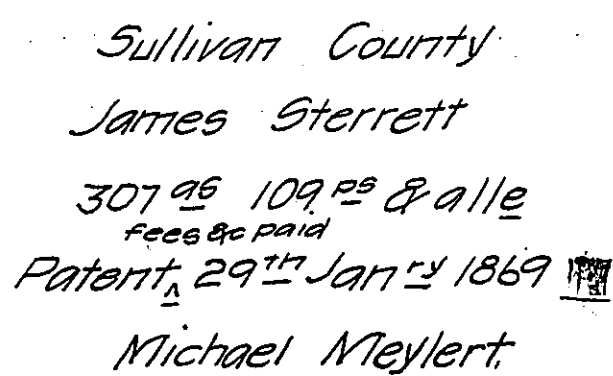 Sullivan County
James Sterrett
307 as 109 ps & alle
fees &c paid
Patent ^ 29th Janry 1869
Michael Meylert.